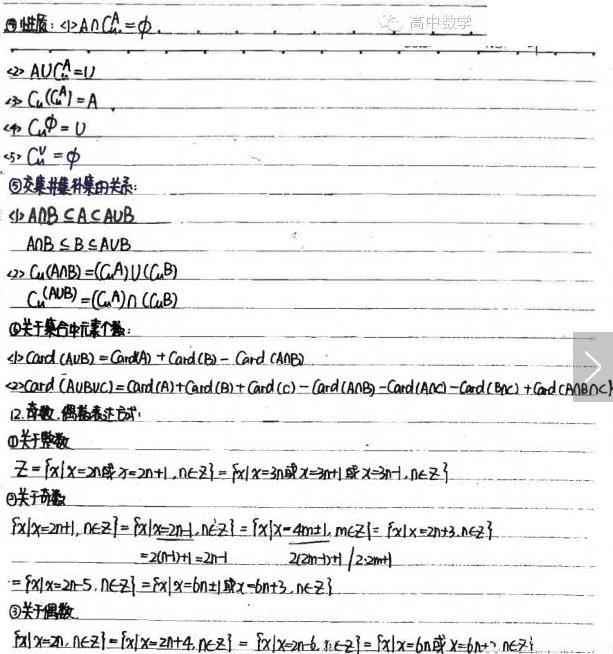 ④性质：<1> A∩CuA=φ.
高中数学
<2> A∪CuA=U
<3> Cu(CuA)=A
<4> Cuφ=U
<5> CuU=φ
⑤交集并集补集的关系:
<1> A∩B⊆A⊆A∪B
A∩B⊆B⊆A∪B
<2> Cu(A∩B)=(CuA)∪(CuB)
Cu(A∪B)=(CuA)∩(CuB)
⑥关于集合中元素个数:
<1> Card(A∪B)=Card(A)+Card(B)-Card(A∩B)
<2> Card(A∪B∪C)=Card(A)+Card(B)+Card(C)-Card(A∩B)-Card(A∩C)-Card(B∩C)+Card(A∩B∩C)
12.奇数.偶数表达方式:
①关于整数
Z={x|x=2n或x=2n+1,n∈Z}={x|x=3n或x=3n+1或x=3n-1,n∈Z}
②关于奇数
{x|x=2n+1,n∈Z}={x|x=2n-1,n∈Z}={x|x=4m±1,m∈Z}={x|x=2n+3,n∈Z}
=2(n-1)+1=2n-1 2(2m-1)+1 / 2·2m+1
={x|x=2n-5,n∈Z}={x|x=6n±1或x=6n+3,n∈Z}
③关于偶数
{x|x=2n,n∈Z}={x|x=2n+4,n∈Z}={x|x=2n-6,n∈Z}={x|x=6n或x=6n+2,n∈Z}